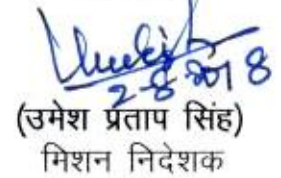 2-8-2018
(उमेश प्रताप सिंह)
मिशन निदेशक